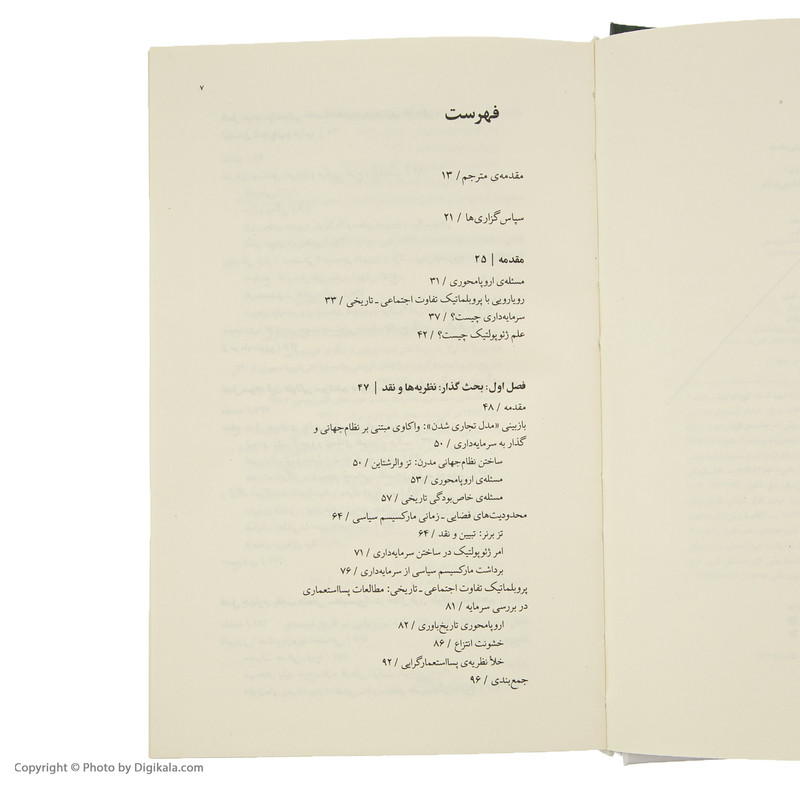 ۷
فهرست
مقدمه‌ی مترجم / ۱۳
سپاس‌گزاری‌ها / ۲۱
مقدمه | ۲۵
مسئله‌ی اروپامحوری / ۳۱
رویارویی با پروبلماتیک تفاوت اجتماعی ـ تاریخی / ۳۳
سرمایه‌داری چیست؟ / ۳۷
علم ژئوپولتیک چیست؟ / ۴۲
فصل اول: بحث گذار: نظریه‌ها و نقد | ۴۷
مقدمه / ۴۸
بازبینی «مدل تجاری شدن»: واکاوی مبتنی بر نظام‌جهانی و
گذار به سرمایه‌داری / ۵۰
ساختن نظام‌جهانی مدرن: تز والرشتاین / ۵۰
مسئله‌ی اروپامحوری / ۵۳
مسئله‌ی خاص‌بودگی تاریخی / ۵۷
محدودیت‌های فضایی ـ زمانی مارکسیسم سیاسی / ۶۴
تز برنر: تبیین و نقد / ۶۴
امر ژئوپولتیک در ساختن سرمایه‌داری / ۷۱
برداشت مارکسیسم سیاسی از سرمایه‌داری / ۷۶
پروبلماتیک تفاوت اجتماعی ـ تاریخی: مطالعات پسااستعماری
در بررسی سرمایه / ۸۱
اروپامحوری تاریخ‌باوری / ۸۲
خشونت انتزاع / ۸۶
خلأ نظریه‌ی پسااستعمارگرایی / ۹۲
جمع‌بندی / ۹۶
Copyright © Photo by Digikala.com